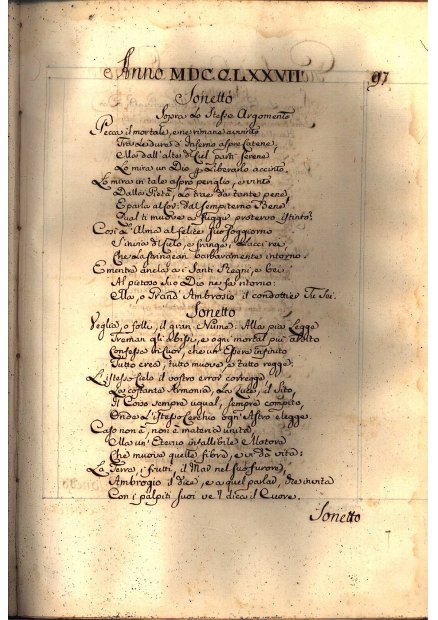 Anno MDCCLXXVII 97
Sonetto
Sopra lo stesso Argomento
Pecca il mortale, e ne rimane avvinto
Tra le dure d' Inferno aspre Catene,
Ma dall' alte, di Ciel parti serene
Lo mira un Dio p liberarlo accinto.
Lo mira in tale aspro periglio, e vinto
Dalla Pietà, lo trae da tante pene,
E parla al Cor: dal sempiterno Bene
Qual ti muove a fuggir protervo istinto?
Così l' Alma al felice suo soggiorno
S' invia di Cielo, e frange i lacci rei,
Che la stringean barbaramente intorno.
E mentre anela a i Santi Regni, e bei
Al pietoso suo Dio ne fa ritorno:
Ma, o Grand' Ambrosio il condottier Tu sei.
Sonetto
Veglia, o folli, il gran Nume: Alla pia Legge
Treman gli Abissi, e ogni mortal più
Confessa in Cuor, che un' Essere infinito
Tutto crea, tutto muove, e tutto regge.
L' istesso Cielo il vostro error corregge
La costante Armonia, la Luce, il Sito,
Il Corso sempre ugual, sempre compito,
Onde l' istesso Cerchio ogn' Astro elegge.
Caso non è, non è materia unita,
Ma un' Eterno infallibile Motore
Che muove quelle fibre, e vi dà vita:
La Terra, i frutti, il Mar nel suo furore,
Ambrogio il dice, e a quel parlar, che invita
Con i palpiti suoi ve 'l dica il Cuore.
Sonetto